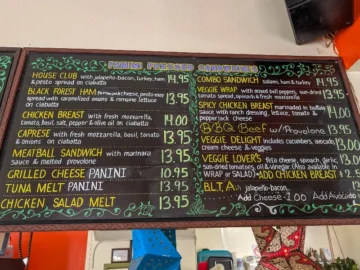 HOUSE CLUB with jalapeño-bacon, turkey, ham 14.95
& pesto spread on ciabatta
BLACK FOREST HAM pesto mayo 13.95
spread with caramelized onions & romaine lettuce
on ciabatta
CHICKEN BREAST with fresh mozzarella, 14.00
tomato, basil, salt, pepper & olive oil on ciabatta
CAPRESE with fresh mozzarella, basil, tomato 13.95
& onions on ciabatta
MEATBALL SANDWICH with marinara 13.95
sauce & melted provolone
GRILLED CHEESE PANINI 10.95
TUNA MELT PANINI 13.95
CHICKEN SALAD MELT 13.95
COMBO SANDWICH salami, ham & turkey
VEGGIE WRAP with mixed bell peppers, sun-dried 13.95
tomato spread, & fresh mozzarella
SPICY CHICKEN BREAST marinated in buffalo
sauce with ranch dressing, lettuce, tomato & 14.00
pepperjack
BBQ Beef w/ Provolone 13.95
VEGGIE DELIGHT includes cucumbers, avocado 13.00
cream cheese & veggies
VEGGIE LOVER'S feta cheese, spinach, garlic, 13.50
sun-dried tomatoes, oil & (Also available in
WRAP or SALAD) ADD CHICKEN BREAST $2.5
B.L.T. jalapeño-bacon
Add Cheese - 2.00 Add Avocado